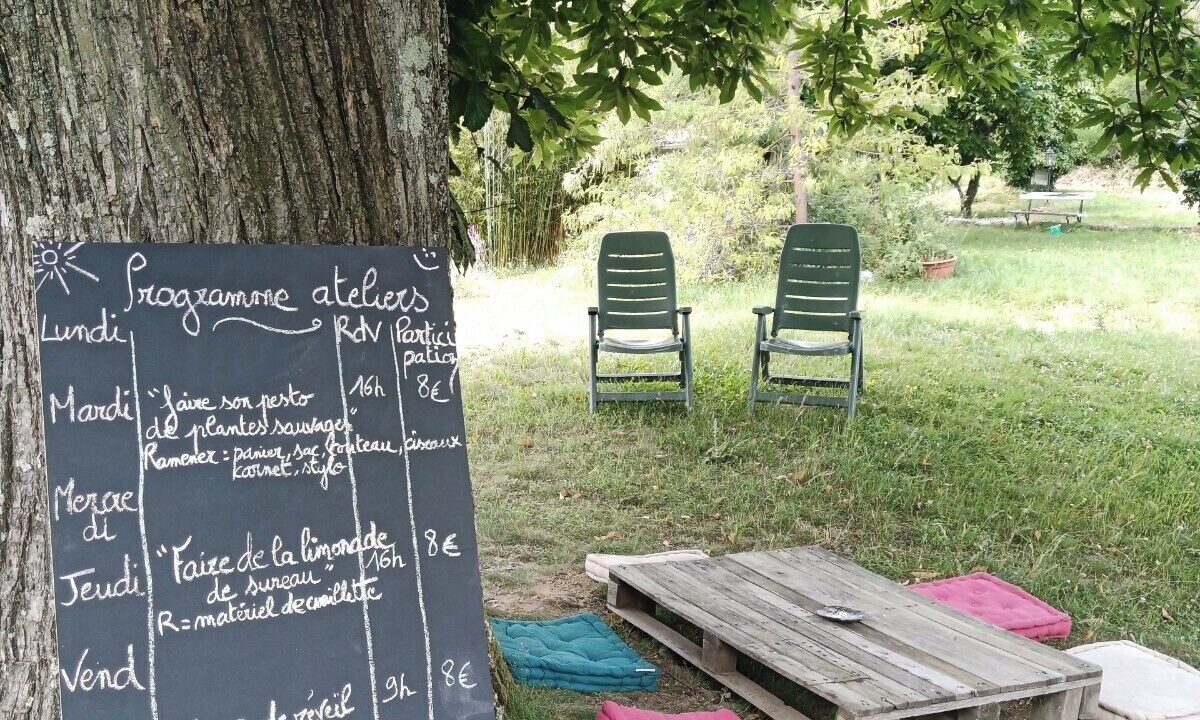 Programme ateliers
Lundi RdV Partici
pation
Mardi "faire son pesto 16h 8€
de plantes sauvages"
Ramener = panier, sac, couteau, ciseaux
carnet, stylo
Mercre
di
Jeudi "Faire de la limonade 16h 8€
de sureau"
R = matériel de cueillette
Vend 9h 8€
réveil